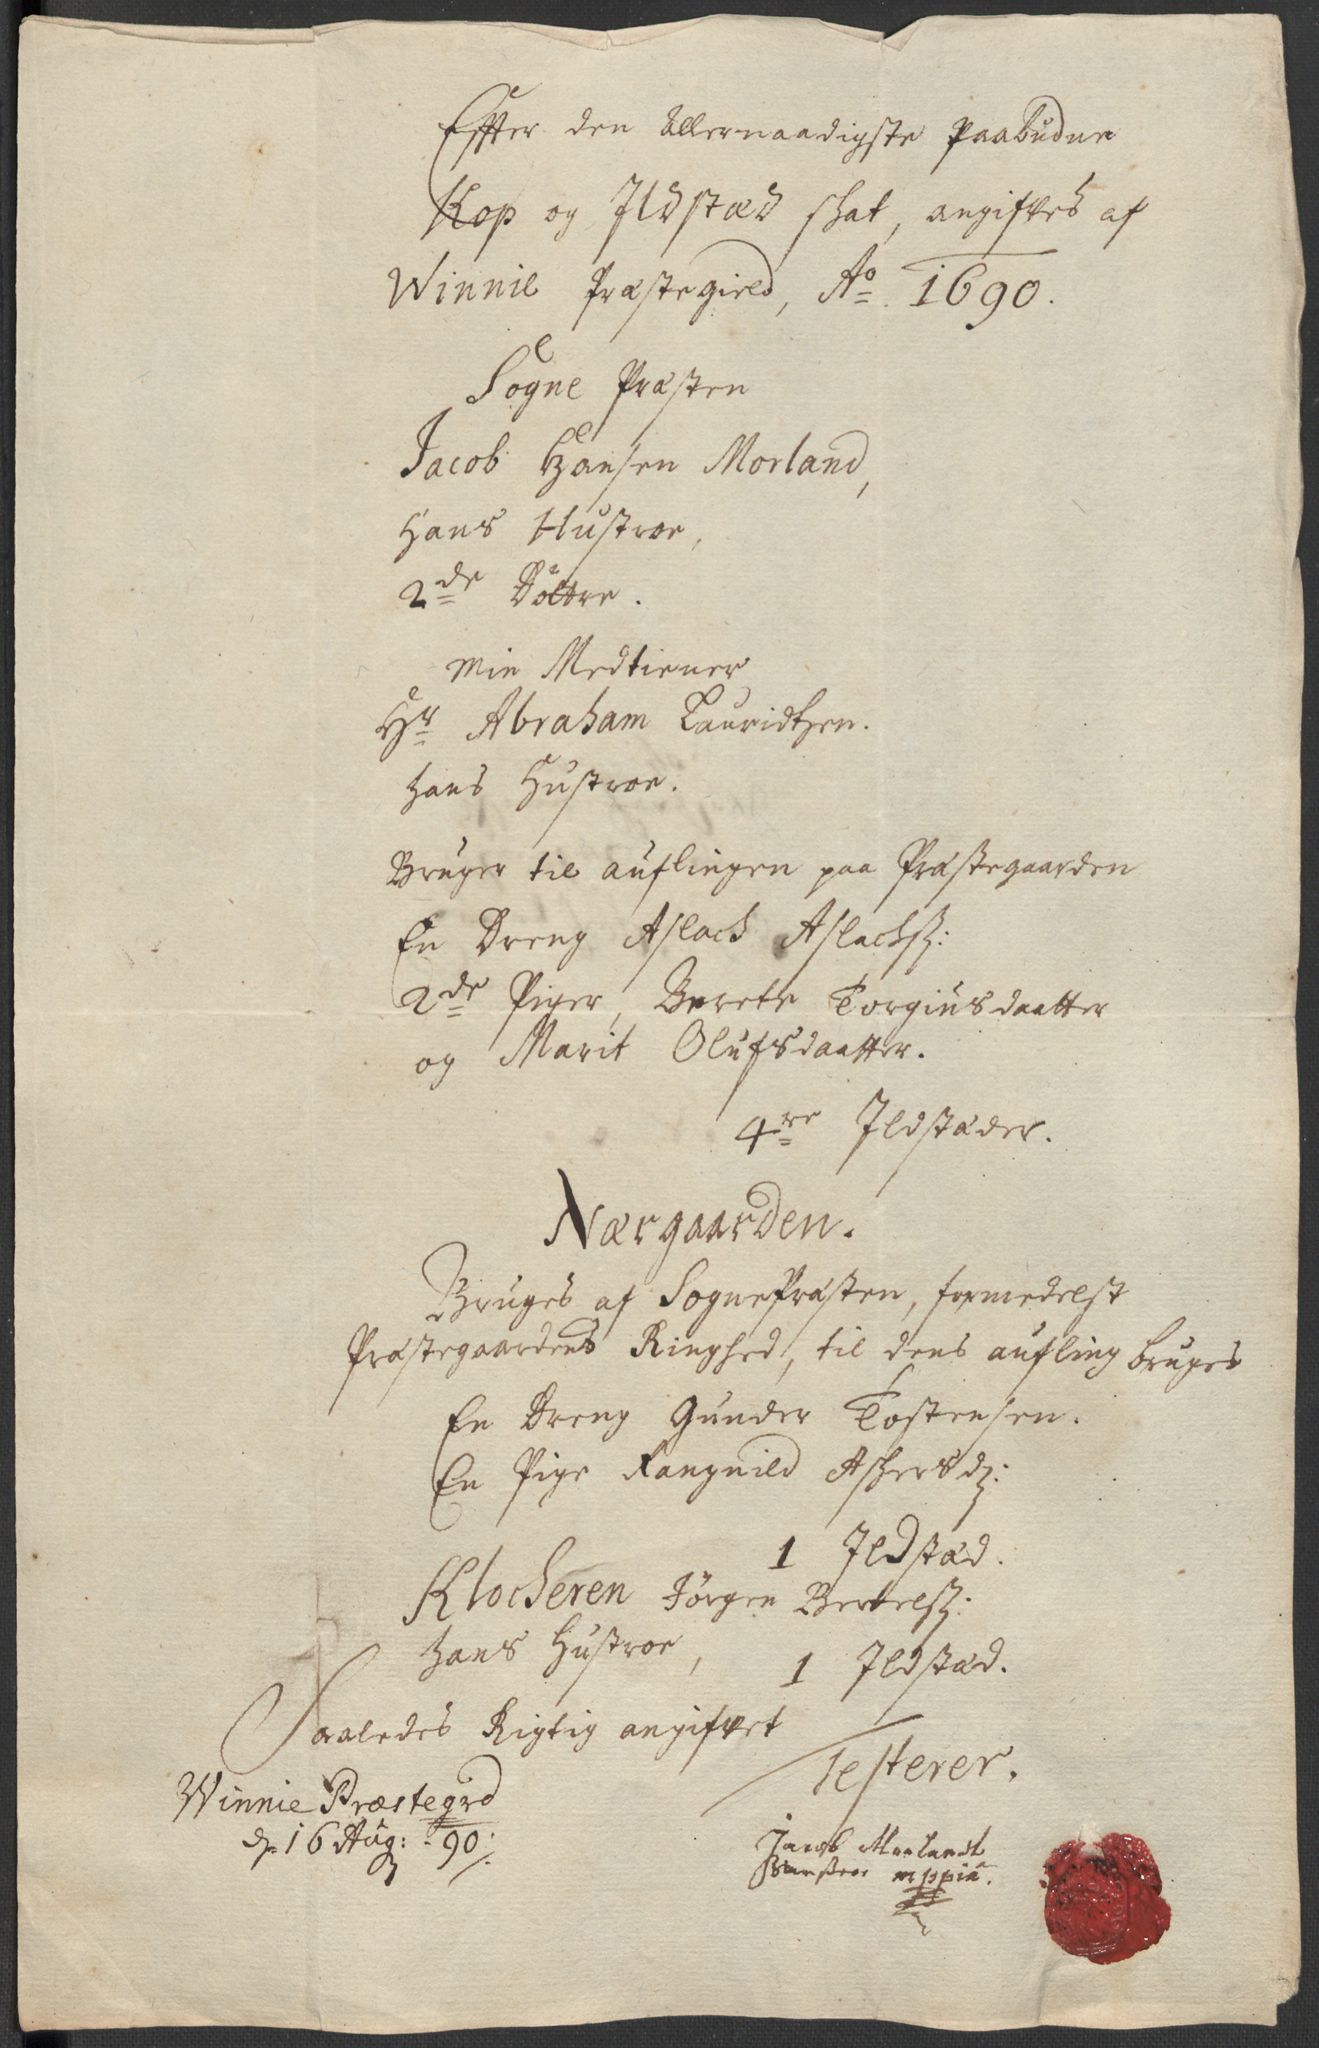 Effter den Allernaadigste Paabudne
Kop og Ildstæd skat, angifves af
Winnie Præstegield, Ao 1690.
Sogne Præsten
Jacob Hansen Morland,
Hans Hustroe,
2de Döttre.
Min Medtiener
Hr Abraham Lauridtzen.
hans Hustroe.
Bruger til auflingen paa Præstegaarden
En Dreng Aslach Aslachß:
2de Piger, Berete Torgiusdaatter
og Marit Olufsdaatter.
4re Ildstæder.
Nærgaarden.
Bruges af SognePræsten, formedelst
Præstegaardens Ringhed, til dens aufling bruges
En Dreng Gunder Tostensen.
En Pige Rangnild Aschersd:
1 Ildstæd.
Klocheren Jörgen Bertelß:
hans Hustroe, 1 Ildstæd.
Saaledes Rigtig angifvet
Testerer.
Winnie Præstegrd
d. 16 Aug: 90.
Jacob Morlandt
mppria.